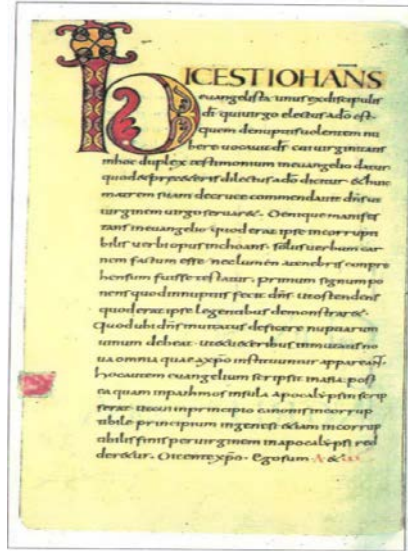 HIC EST IOHANS
euangelista unus ex discipulis
di qui uirgo electus ado est
quem denuptiis uolentem nu
bere uocauit ds cui uirginitatis
inhoc duplex testimonium ineuangelio datur
quod & prae ceteris dilectus ado dicitur & huic
matrem suam decruce commendauit dns ut
uirginem uirgo seruar&. Denique manifes
tans ineuangelio quod erat ipse incorrupti
bilis uerbi opus inchoans. solus uerbum car
nem factum esse nec lumen atenebris compre
hensum fuisse testatur. primum signum po
nens quod innuptiis fecit dns ut ostendens
quod erat ipse legentibus demonstrar&.
quod ubi dns inuitatus deficere nuptiarum
uinum debeat. ut & ueteribus inmutatis no
ua omnia quae axpo instituuntur appareant.
hoc autem euangelium scripsit inasia. post
ea quam inpathmos insula apocalypsin scrip
serat ut cui inprincipio canonis incorrup
tibile principium ingenesi & iam incorrup
tibilis finis per uirginem inapocalypsi red
der&ur. Dicente xpo. Ego sum A & ω